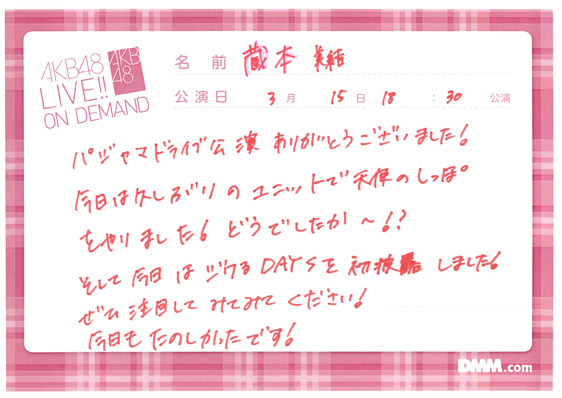 AKB48
LIVE!!
ON DEMAND
AKB
48
名前 蔵本 美結
公演日 3月 15日 18:30 公演
パジャマドライブ公演 ありがとうございました!
今日は久しぶりのユニットで天使のしっぽ
をやりました!どうでしたか〜!?
そして今日はジワるDAYSを初披露しました!
ぜひ注目してみてみてください!
今日もたのしかったです!
DMM.com